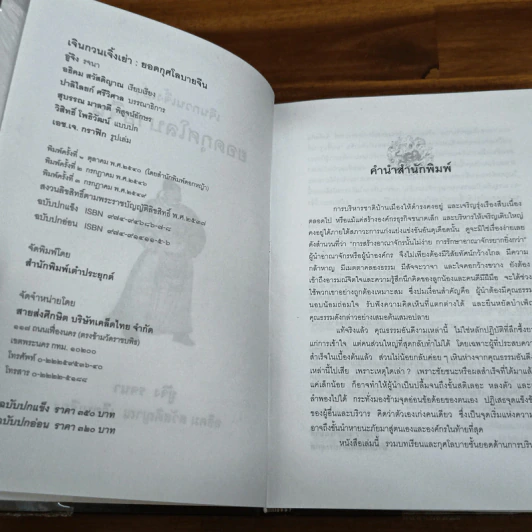 เจินกวนเจิ้งเย่า : ยอดกุศโลบายจีน
อู๋จิง รจนา
อธิคม สวัสดิญาณ เรียบเรียง
ปาลิไลยก์ ศรีวิศาล บรรณาธิการ
สุบรรณ มาลาดี พิสูจน์อักษร
วิสิทธิ์ โพธิวัฒน์ แบบปก
เอช.เจ. กราฟิก รูปเล่ม
พิมพ์ครั้งที่ ๑ ตุลาคม พ.ศ.๒๕๔๐
พิมพ์ครั้งที่ ๒ กรกฎาคม พ.ศ.๒๕๔๖
พิมพ์ครั้งที่ ๓ กรกฎาคม
สงวนลิขสิทธิ์ตามพระราชบัญญัติลิขสิทธิ์
ฉบับปกแข็ง ISBN
ฉบับปกอ่อน ISBN
จัดพิมพ์โดย
สำนักพิมพ์เต๋าประยุกต์
จัดจำหน่ายโดย
สายส่งศึกษิต บริษัทเคล็ดไทย จำกัด
ถนนเฟื่องนคร (ตรงข้ามวัดราชบพิธ)
เขตพระนคร กทม. ๑๐๒๐๐
โทรศัพท์
โทรสาร
ฉบับปกแข็ง ราคา ๓๕๐ บาท
ฉบับปกอ่อน ราคา ๓๒๐ บาท
คำนำสำนักพิมพ์
การบริหารชาติบ้านเมืองให้ดำรงคงอยู่ และเจริญรุ่งเรืองสืบเนื่อง
ตลอดไป หรือแม้แต่สร้างองค์กรธุรกิจขนาดเล็ก และบริหารให้เจริญเติบใหญ่
คงอยู่ได้ภายใต้สภาวะการแก่งแย่งแข่งขันอันดุเดือดนั้น ดูจะมิใช่เรื่องง่ายเลย
ดังสำนวนที่ว่า "การสร้างอาณาจักรนั้นไม่ง่าย การรักษาอาณาจักรยากยิ่งกว่า"
ผู้นำอาณาจักรหรือผู้นำองค์กร จึงไม่เพียงต้องมีวิสัยทัศน์กว้างไกล มีความ
กล้าหาญ มีเมตตาคลองธรรม มีสัจจะวาจา และใจคอกว้างขวาง ยังต้อง
เข้าถึงอารมณ์จิตใจและความรู้สึกนึกคิดของลูกน้องและคนดีมีฝีมือ จะได้ช่วง
ใช้พวกเขาอย่างถูกต้องเหมาะสม ซึ่งปมเงื่อนสำคัญคือ ผู้นำต้องมีคุณธรรม
นอบน้อมถ่อมใจ รับฟังความคิดเห็นที่แตกต่างได้ และยืนหยัดบำเพ็
คุณธรรมดังกล่าวอย่างเสมอต้นเสมอปลาย
แท้จริงแล้ว คุณธรรมอันดีงามเหล่านี้ ไม่ใช่หลักปฏิบัติที่ลึกซึ้งยา
แก่การเข้าใจ แต่คนส่วนใหญ่ที่สุดกลับทำไม่ได้ โดยเฉพาะผู้ที่ประสบความ
สำเร็จในเบื้องต้นแล้ว ส่วนไม่น้อยกลับค่อย ๆ เหินห่างจากคุณธรรมอันดี
เหล่านี้ไปเสีย เพราะเหตุใดเล่า ? เพราะชัยชนะหรือผลสำเร็จที่ได้มาแล้
แค่เล็กน้อย ก็อาจทำให้ผู้นำเป็นปลื้มจนถึงขั้นสติเลอะ หลงตัว และ
ลำพองไปได้ กระทั่งมองข้ามจุดอ่อนข้อด้อยของตนเอง ปฏิเสธจุดแข็งข้
ของผู้อื่นและบริวาร คิดว่าตัวเองเก่งคนเดียว ซึ่งเป็นจุดเริ่มแห่งความ
อาจถึงขั้นนำหายนะภัยมาสู่ตนเองและองค์กรในท้ายที่สุด
หนังสือเล่มนี้ รวมบทเรียนและกุศโลบายชั้นยอดด้านการบริห